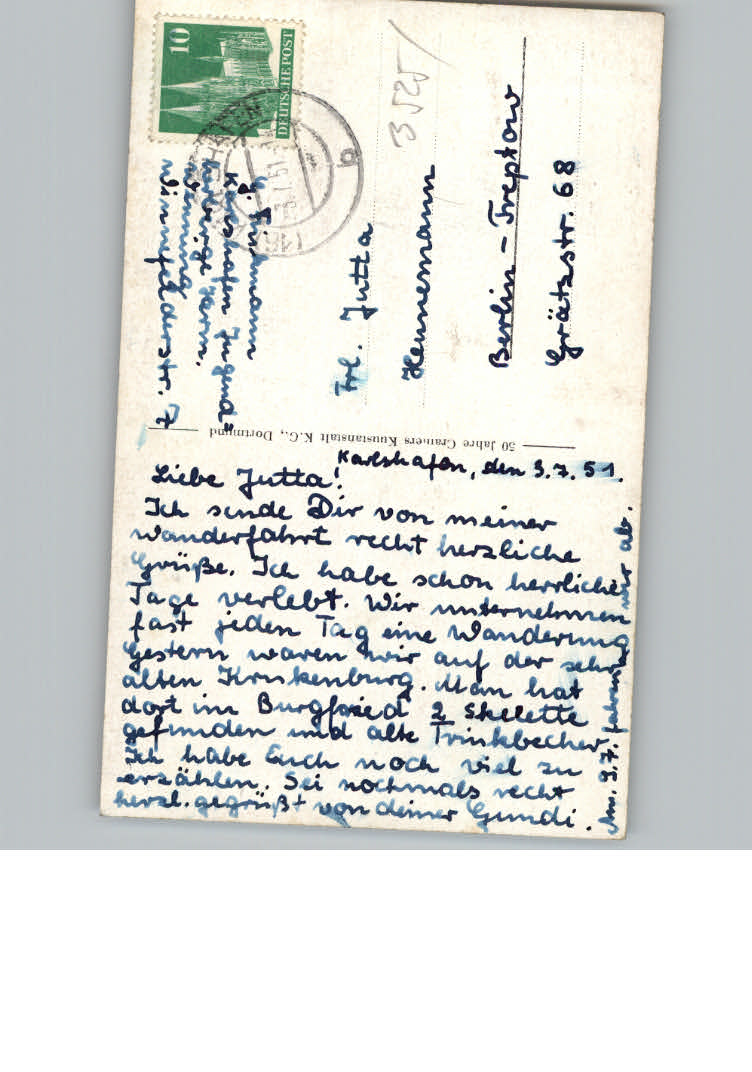 10
DEUTSCHE POST
3.7.51
a
3525/
Karlshafen Jugend=
herberge
7
Frl. Jutta
Hennemann
Berlin-Treptow
Grätzstr. 68
50 Jahre Cramers Kunstanstalt K.G., Dortmund
Karlshafen, den 3.7.51.
Liebe Jutta!
Ich sende Dir von meiner
Wanderfahrt recht herzliche
Grüße. Ich habe schon herrliche
Tage verlebt. Wir unternehmen
fast jeden Tag eine Wanderung
Gestern waren wir auf der sehr
alten Krukenburg. Man hat
dort im Burgfried 2 Skelette
gefunden und alte Trinkbecher.
Ich habe Euch noch viel zu
erzählen. Sei nochmals recht
herzl. gegrüßt von deiner Gundi.
Am 9.7. fahren wir ab.